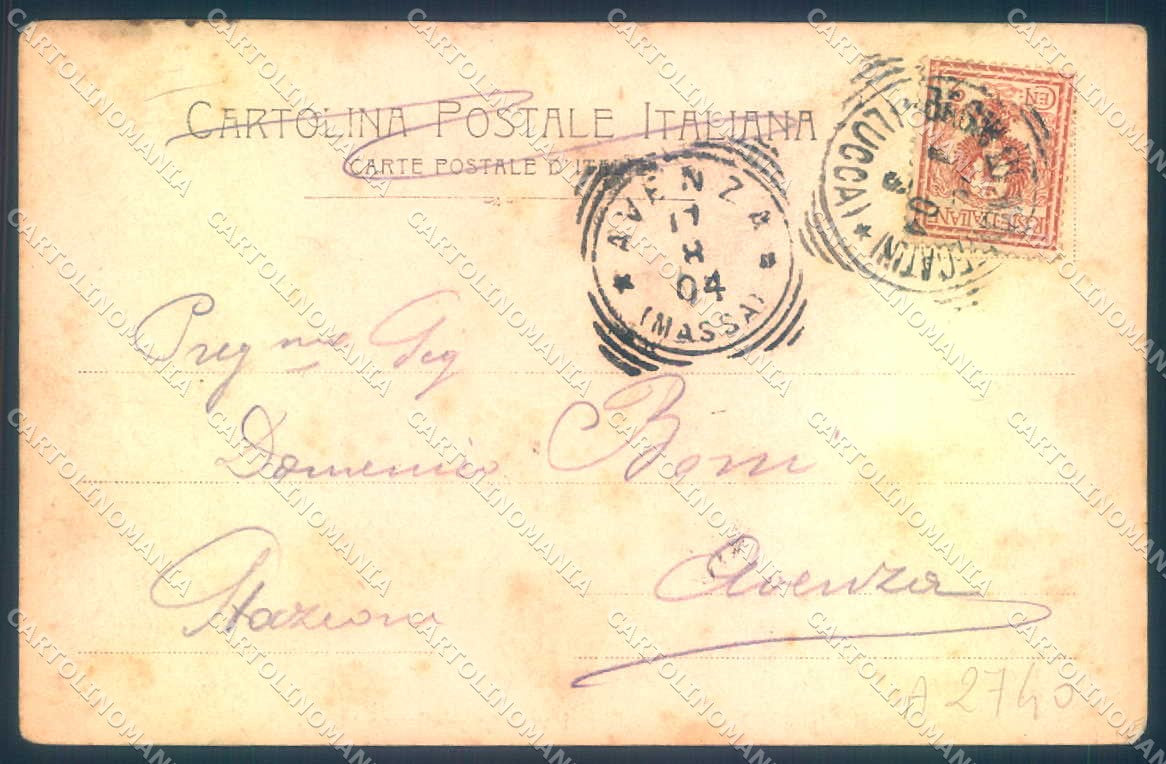 CARTOLINA POSTALE ITALIANA
CARTE POSTALE D'ITALIE
AVENZA
17
8
04
(MASSA)
(LUCCA)
04
CEN
POSTE ITALIANE
Preg.me Sig
Domenico Boni
Stazione
Avenza
A 2740
CARTOLINOMANIA